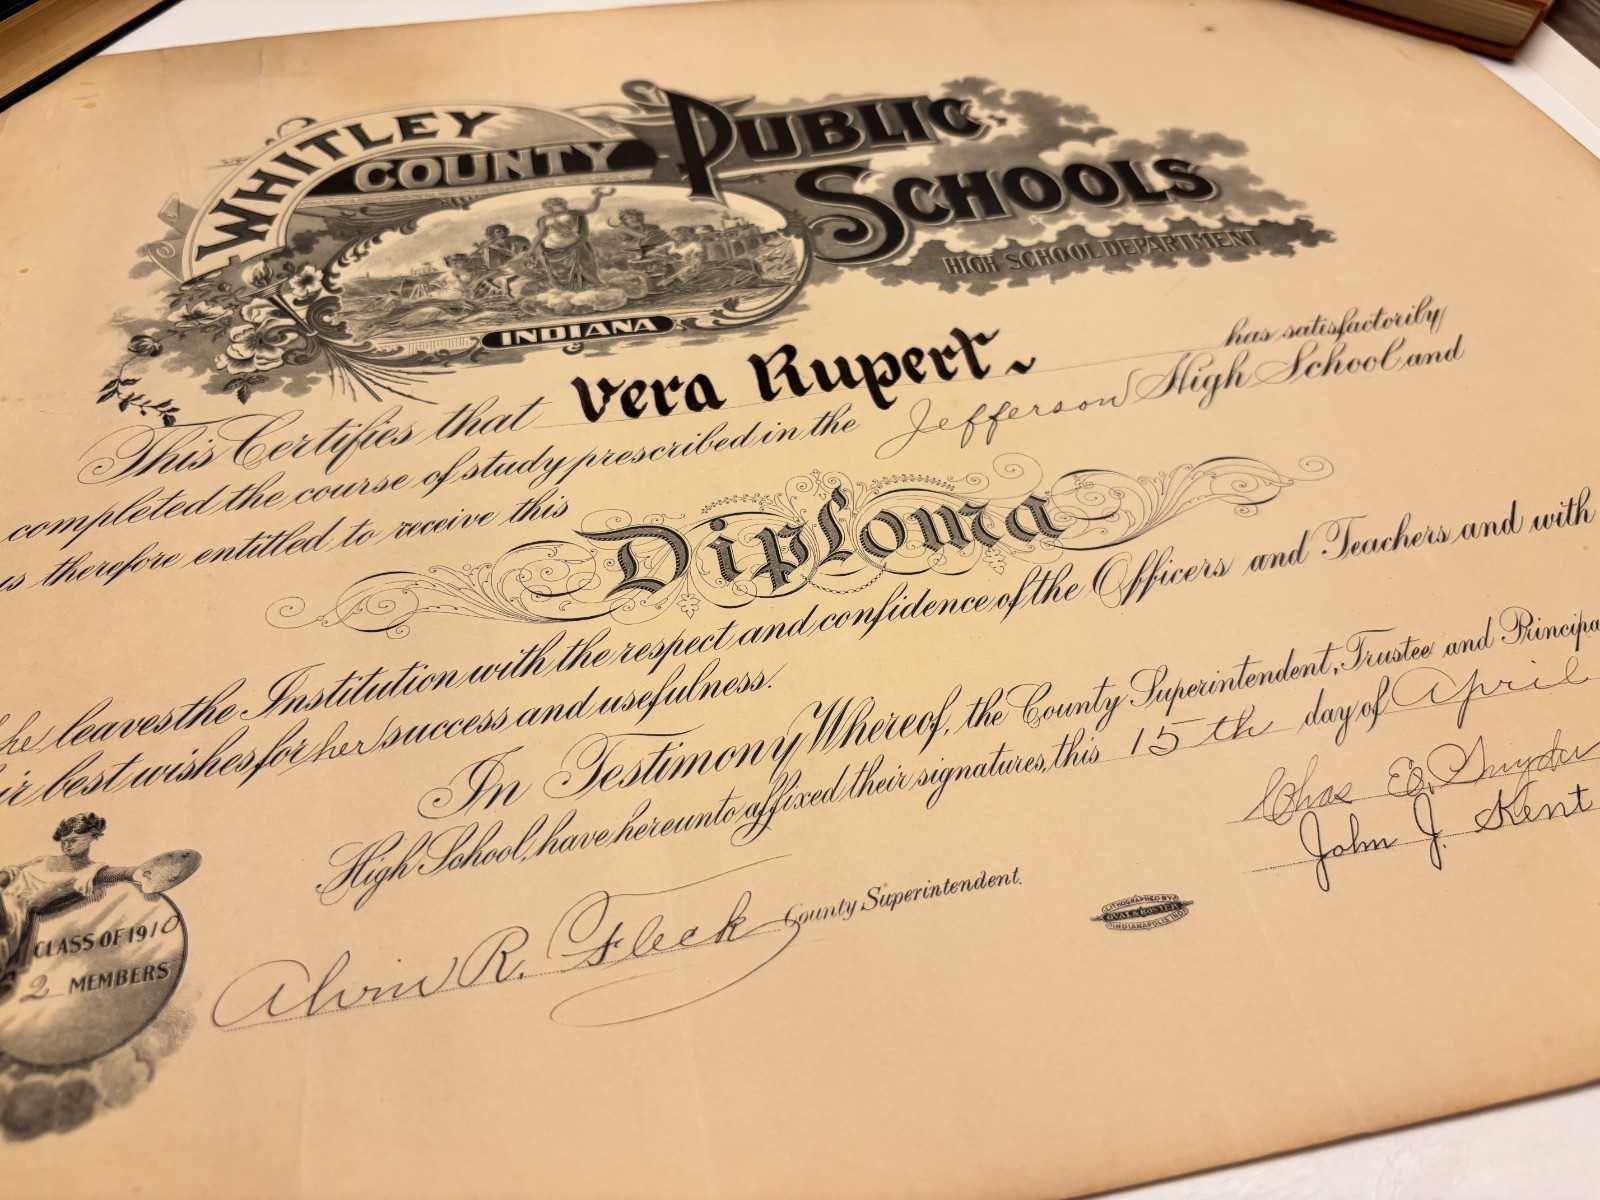 WHITLEY
COUNTY PUBLIC
SCHOOLS
HIGH SCHOOL DEPARTMENT
INDIANA
This Certifies that Vera Rupert has satisfactorily
completed the course of study prescribed in the Jefferson High School and
is therefore entitled to receive this
Diploma
he leaves the Institution with the respect and confidence of the Officers and Teachers and with
ir best wishes for her success and usefulness.
In Testimony Whereof, the County Superintendent, Trustee and Principa
High School, have hereunto affixed their signatures, this 15th day of April
Chas E. Snyder
John J. Kent
Alvin R. Fleck County Superintendent.
CLASS OF 1910
2 MEMBERS
LITHOGRAPHED BY
INDIANAPOLIS IND